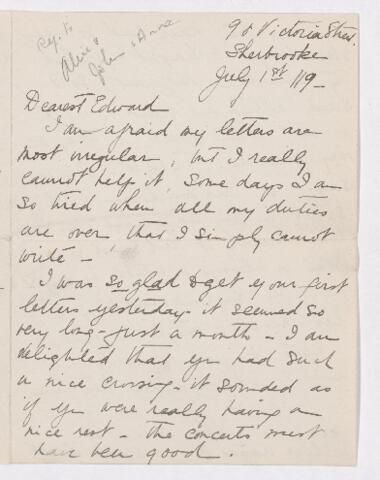 Alice &
John & Anna
90 Victoria Street
Sherbrooke
July 1st 1/19-
Dearest Edward
I am afraid my letters are
most irregular, but I really
cannot help it, some days I am
so tired when all my duties
are over that I simply cannot
write -
I was so glad to get your first
letters yesterday - it seemed so
very long - just a month - I am
delighted that you had such
a nice crossing - it sounded as
if you were really having a
nice rest - the concerts must
have been good.